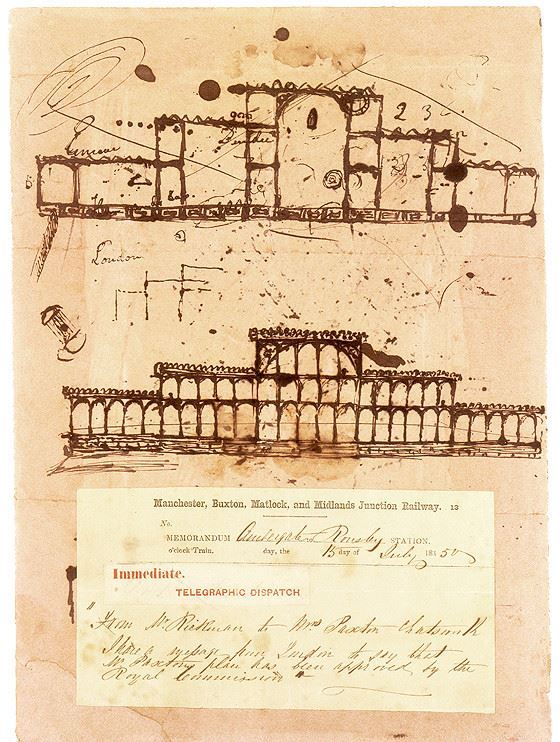 2 3
London
Manchester, Buxton, Matlock, and Midlands Junction Railway. 13
No.
MEMORANDUM STATION.
o'clock Train. day, the 15 day of July 1850
Immediate.
TELEGRAPHIC DISPATCH
"From Mr Rickman to Mrs Paxton Chatsworth
I have a message from London to say that
Mr Paxtons plan has been approved by the
Royal Commission"